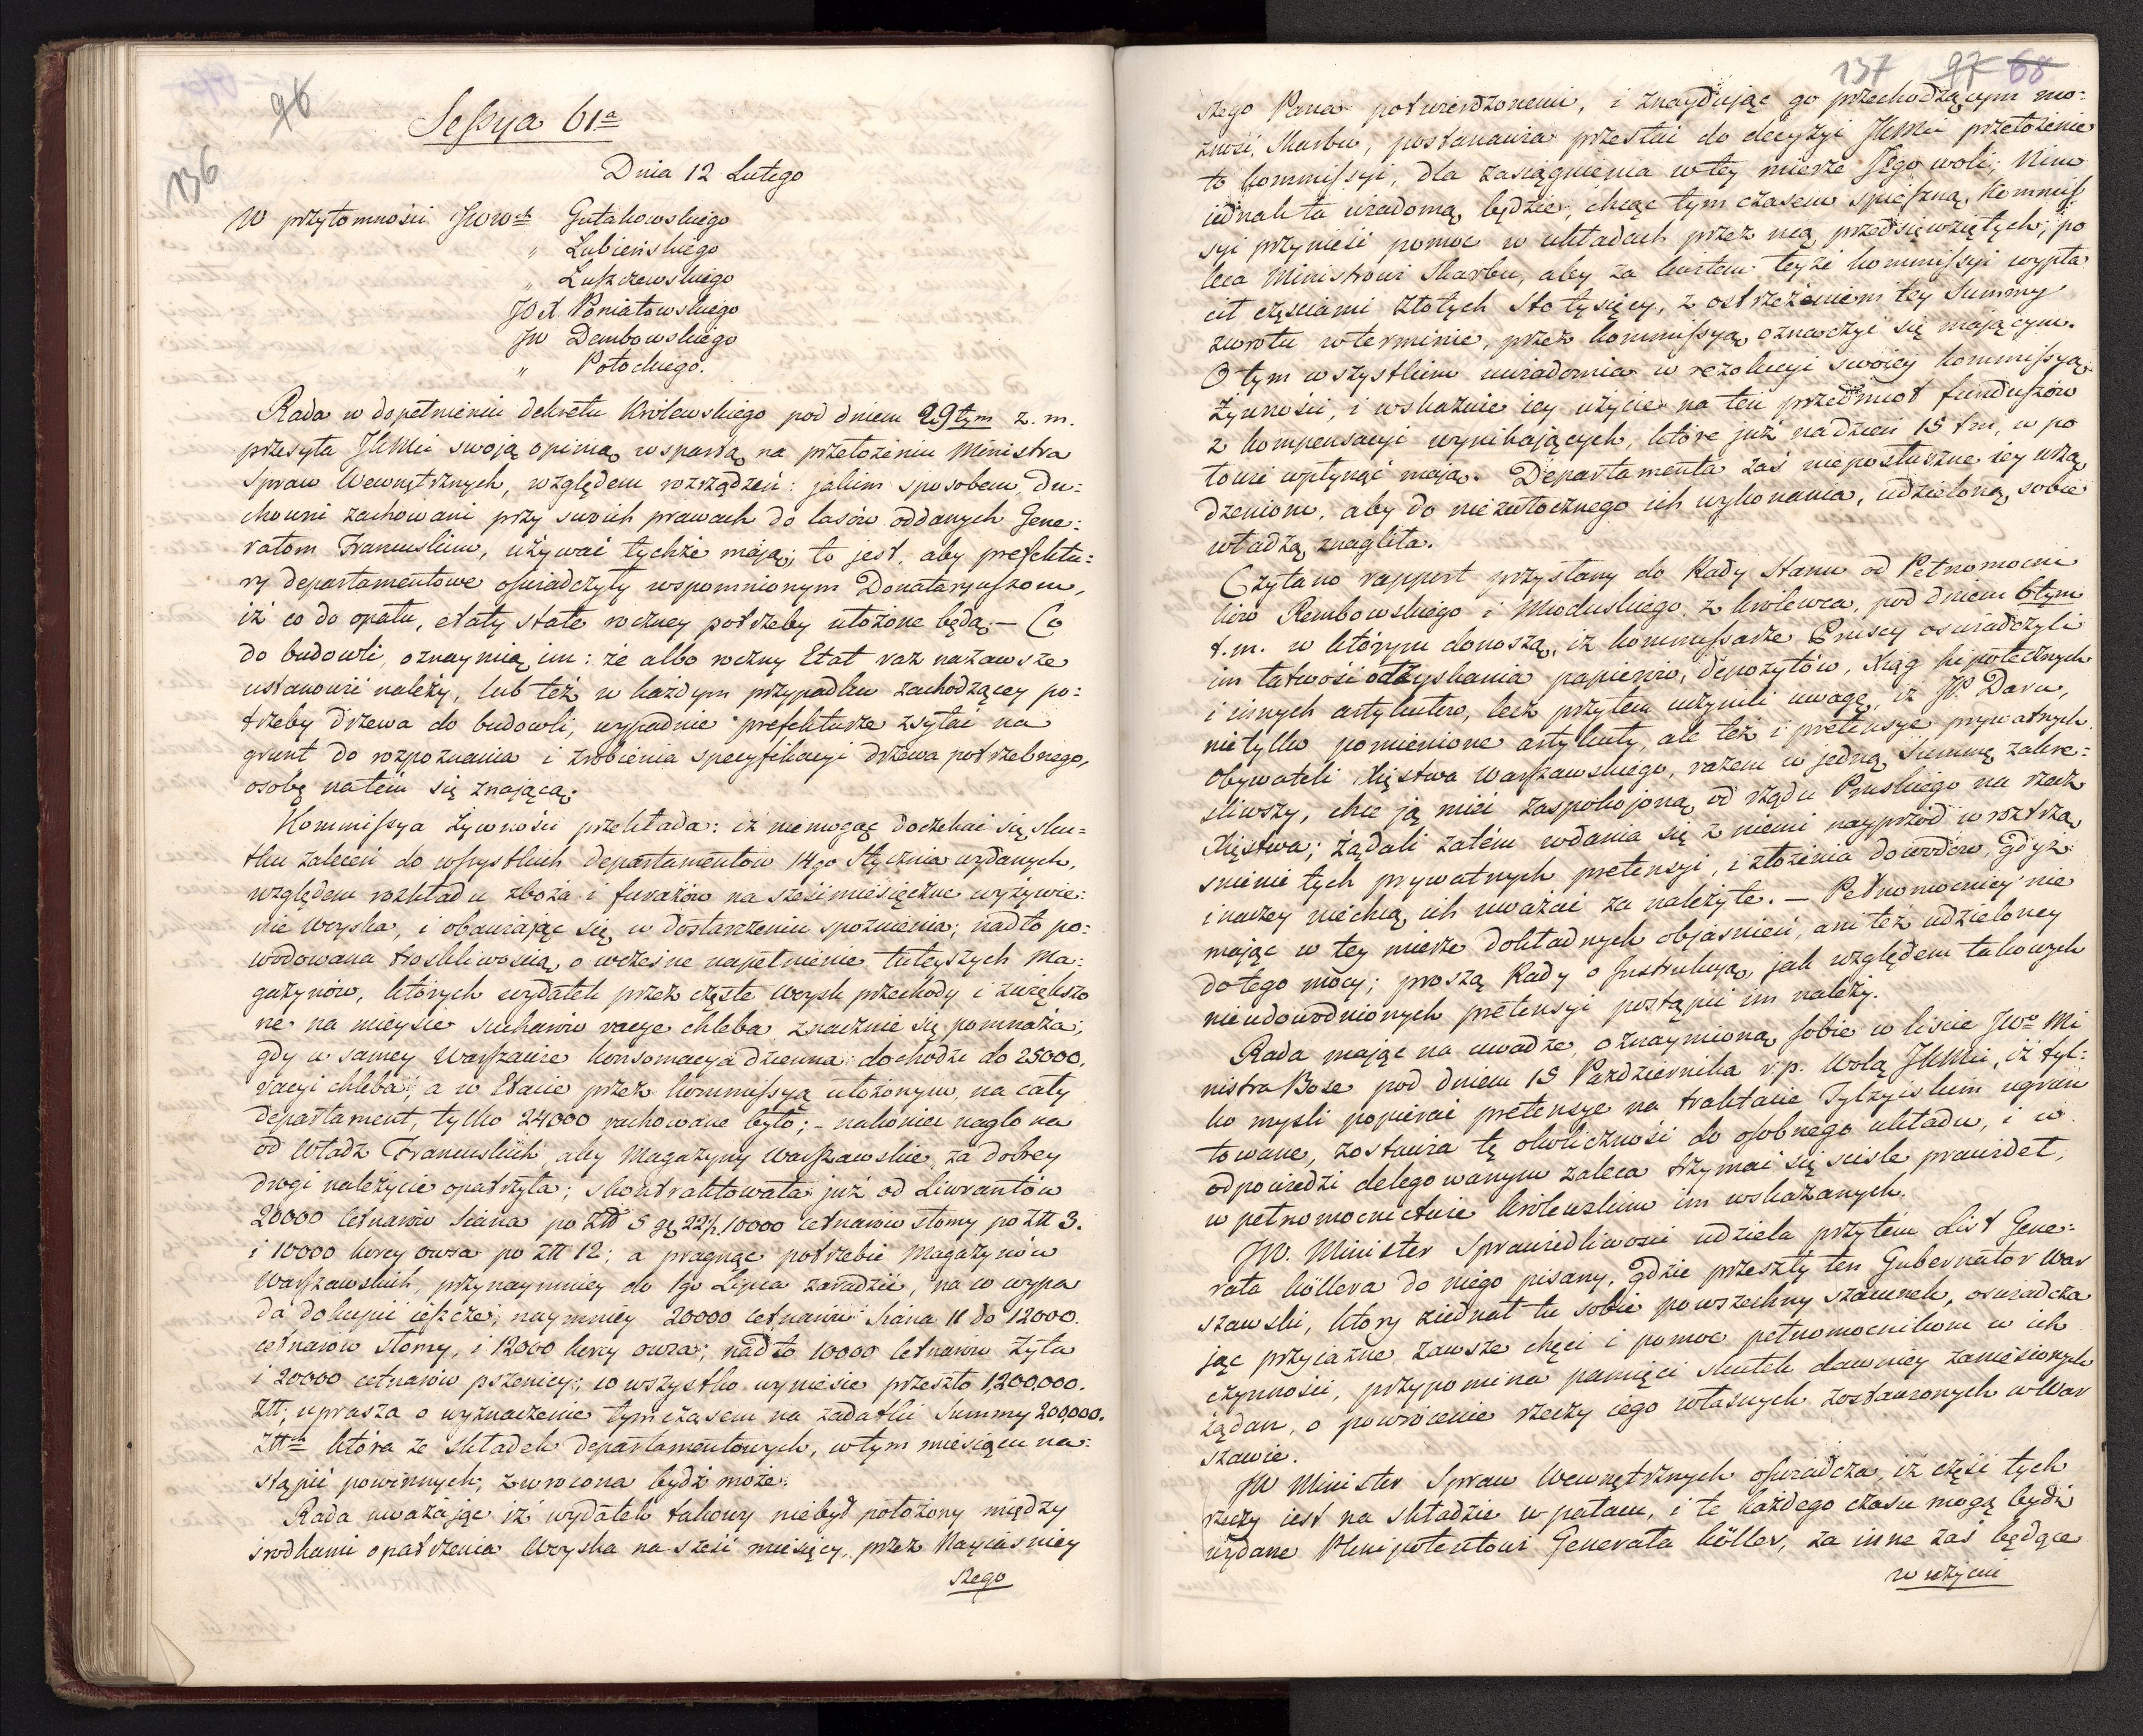 96
136
Seßya 61a
Dnia 12 Lutego
W przytomności JWWch Gutakowskiego
" Łubieńskiego
" Łuszczewskiego
JOX Poniatowskiego
JW Dembowskiego
" Potockiego.
Rada w dopełnieniu dekretu Królewskiego pod dniem 29tym z. m.
przesyła JKMci swoią opinią, wspartą na przełożeniu Ministra
Spraw Wewnętrznych, względem rozrządzeń: jakim sposobem Du=
chowni zachowani przy swoich prawach do lasów oddanych Gene=
rałom Francuskim, używać tychże mają; to jest, aby prefektu=
ry departamentowe oświadczyły wspomnionym Donataryuszom,
iż co do opału, etaty stałe roczney potrzeby ułożone będą. — Co
do budowli, oznaymią im: że albo roczny Etat raz nazawsze
ustanowić należy, lub też w każdym przypadku zachodzącey po=
trzeby drzewa do budowli, wypadnie prefekturze zsyłać na
grunt do rozpoznania i zrobienia specyfikacyi drzewa potrzebnego,
osobę natém się znającą.
Kommissya Żywności przekłada: iż niemogąc doczekać się sku=
tku zaleceń do wszystkich departamentów 14go Stycznia wydanych,
względem rozkładu zboża i furażów na sześciomiesięczne wyżywie=
nie woyska, i obawiając się w dostarczeniu spoznienia; nadto po=
wodowana troskliwością o wczesne napełnienie tuteyszych Ma=
gazynów, których wydatek przez częste woysk przechody i zwiększo
ne na mieysce sucharów racye chleba znacznie się pomnaża;
gdy w samey Warszawie konsomacya dzienna dochodzi do 25000.
racyi chleba; a w Etacie przez kommissyą ułożonym, na cały
departament, tylko 24000 rachowane było; - nakoniec naglona
od Władz Francuskich, aby Magazyny Warszawskie, za dobrey
drogi należycie opatrzyła; skontraktowała już od Liwrantów
20000 cetnarów siana po Złł 5 gr 22½, 10000 cetnarów słomy po Złł 3.
i 10000 korcy owsa po Złł 12; a pragnąc potrzebie Magazynów
Warszawskich, przynaymniey do 1go Lipca zaradzić, na co wypa
da dokupić ieszcze; naymniey 20000 cetnarów siana 11 do 12000.
cetnarów słomy, i 12000 korcy owsa; nadto 10000 cetnarów żyta
i 20000 cetnarów pszenicy; co wszystko wyniesie przeszło 1,200,000.
Złł; uprasza o wyznaczenie tymczasem na zadatki Summy 200,000.
Złłch która ze składek departamentowych, w tym miesiącu na=
stąpić powinnych, zwrocona bydź może.
Rada uważając iż wydatek takowy niebył położony między
środkami opatrzenia Woyska na sześć miesięcy, przez Nayiaśniey
szego
137 97 68
szego Pana potwierdzonemi, i znayduiąc go przechodzącym mo=
żność Skarbu, postanawia przesłać do decyzyi JKMci przełożenie
to kommissyi, dla zasiągnienia w tey mierze Jego woli; Nim
iednak ta wiadomą będzie, chcąc tym czasem spieszną Kommis
syi przynieść pomoc w układach przez nią przedsięwziętych; po
leca Ministrowi Skarbu, aby za kwitem teyże kommissyi wypła
cił częściami złotych Sto tysięcy, z ostrzeżeniem tey Summy
zwrotu w terminie, przez kommissyą oznaczyć się mającym.
O tym wszystkim uwiadomia w rezolucyi swoiey kommissyą
Żywności, i wskazuie iey użycie na ten przedmiot funduszów
z kompensacyi wynikających, które już na dzień 15 t.m. w po
łowie wpłynąć mają. Departamenta zaś nieposłuszne iey urzą
dzeniom, aby do niezwłocznego ich wykonania, udzieloną sobie
władzą znagliła.
Czytano rapport przysłany do Rady Stanu od Pełnomocni
ków Rembowskiego i Mioduskiego z Królewca, pod dniem 6tym
t. m. w którym donoszą, iż kommissarze Pruscy oświadczyli
im łatwość odzyskania papierów, depozytów, Xiąg hipotecznych
i innych artykułów, lecz przytém uczynili uwagę, iż JP. Daru,
nietylko pomienione artykuły, ale też i pretensye prywatnych
obywateli Xięstwa Warszawskiego, razem w jedną Summę zakre=
śliwszy, chce ją mieć zaspokojoną od rządu Pruskiego na rzecz
Xięstwa; żądali zatém wdania się z niemi nayprzód w roztrzą
śnienie tych prywatnych pretensyi, i złożenia dowodów, gdyż
inaczey niechcą ich uważać za należyte. — Pełnomocnicy nie
mając w tey mierze dokładnych objaśnień, ani też udzieloney
do tego mocy; proszą Rady o Instrukcyą, jak względem takowych
nieudowodnionych pretensyi postąpić im należy.
Rada mając na uwadze, oznaymioną sobie w liście JWo Mi
nistra Bose pod dniem 15 Pazdziernika r.p. Wolą JKMci, iż tyl=
ko mysli popierać pretensye na traktacie Tylzyiskim ugrun
towane, zostawia tę okoliczność do osobnego układu, i w
odpowiedzi delegowanym zaleca trzymać się ściśle prawideł,
w pełnomocnictwie Królewskim im wskazanych.
JW. Minister Sprawiedliwości udziela przytém List Gene=
rała Köllera do niego pisany, gdzie przeszły ten Gubernator War
szawski, który ziednał tu sobie powszechny szacunek, oświadcza
jąc przyiazne zawsze chęci i pomoc pełnomocnikom w ich
czynności, przypomina pamięci skutek dawniey zaniesionych
żądań, o powrócenie rzeczy iego własnych zostawionych w War
szawie.
JW Minister Spraw Wewnętrznych oświadcza, iż część tych
rzeczy iest na składzie w pałacu, i te każdego czasu mogą bydź
wydane Plenipotentowi Generała Köller, za inne zaś będące
w użyciu